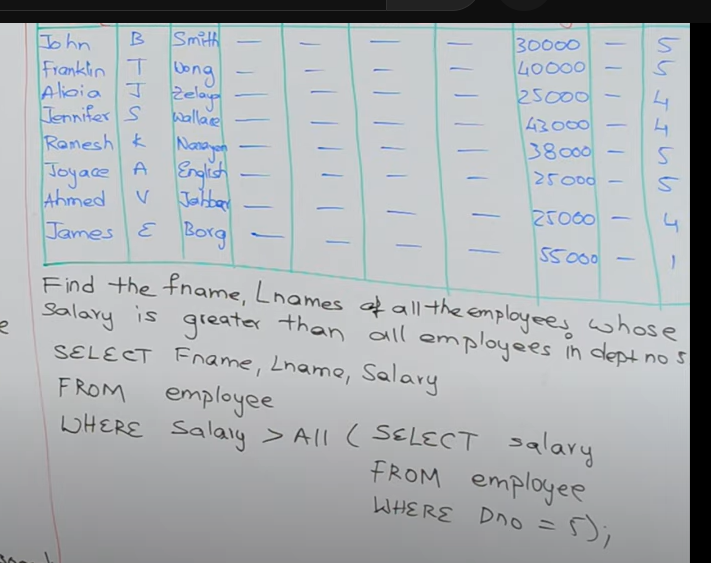 John B Smith — — — — 30000 — 5
Franklin T Wong — — — — 40000 — 5
Alicia J Zelaya — — — — 25000 — 4
Jennifer S Wallace — — — — 43000 — 4
Ramesh K Narayan — — — — 38000 — 5
Joyace A English — — — — 25000 — 5
Ahmed V Jabbar — — — — 25000 — 4
James E Borg — — — — 55000 — 1
Find the fname, Lnames of all the employees whose
Salary is greater than all employees in dept no 5
SELECT Fname, Lname, Salary
FROM employee
WHERE Salary > All ( SELECT salary
FROM employee
WHERE Dno = 5);